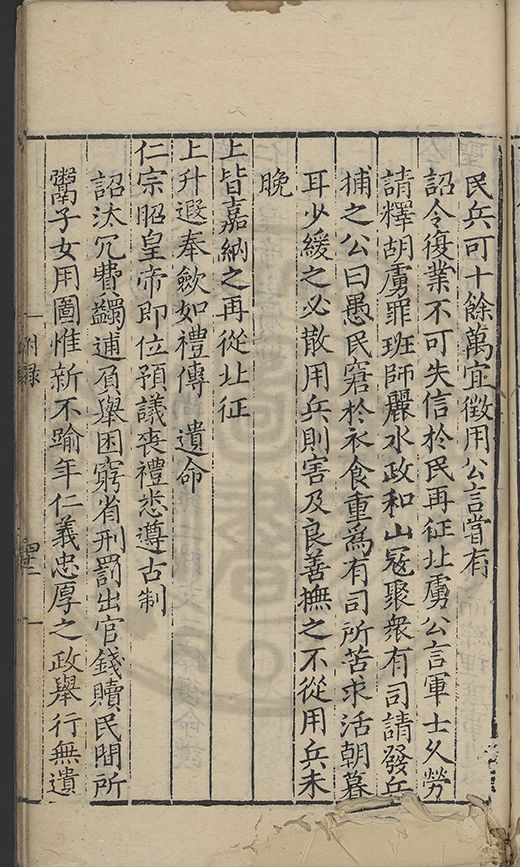 民兵可十餘萬宜徵用公言嘗有
詔令復業不可失信於民再征北虜公言軍士久勞
請釋胡虜罪班師麗水政和山冦聚衆有司請發兵
捕之公曰愚民窘於衣食重爲有司所苦求活朝暮
耳少緩之必散用兵則害及良善撫之不從用兵未
晚
上皆嘉納之再從北征
上升遐奉歛如禮傳 遺命
仁宗昭皇帝即位預議丧禮悉遵古制
詔汰冗費蠲逋負舉困窮省刑罰出官錢贖民間所
鬻子女用圖惟新不踰年仁義忠厚之政舉行無遺
附錄